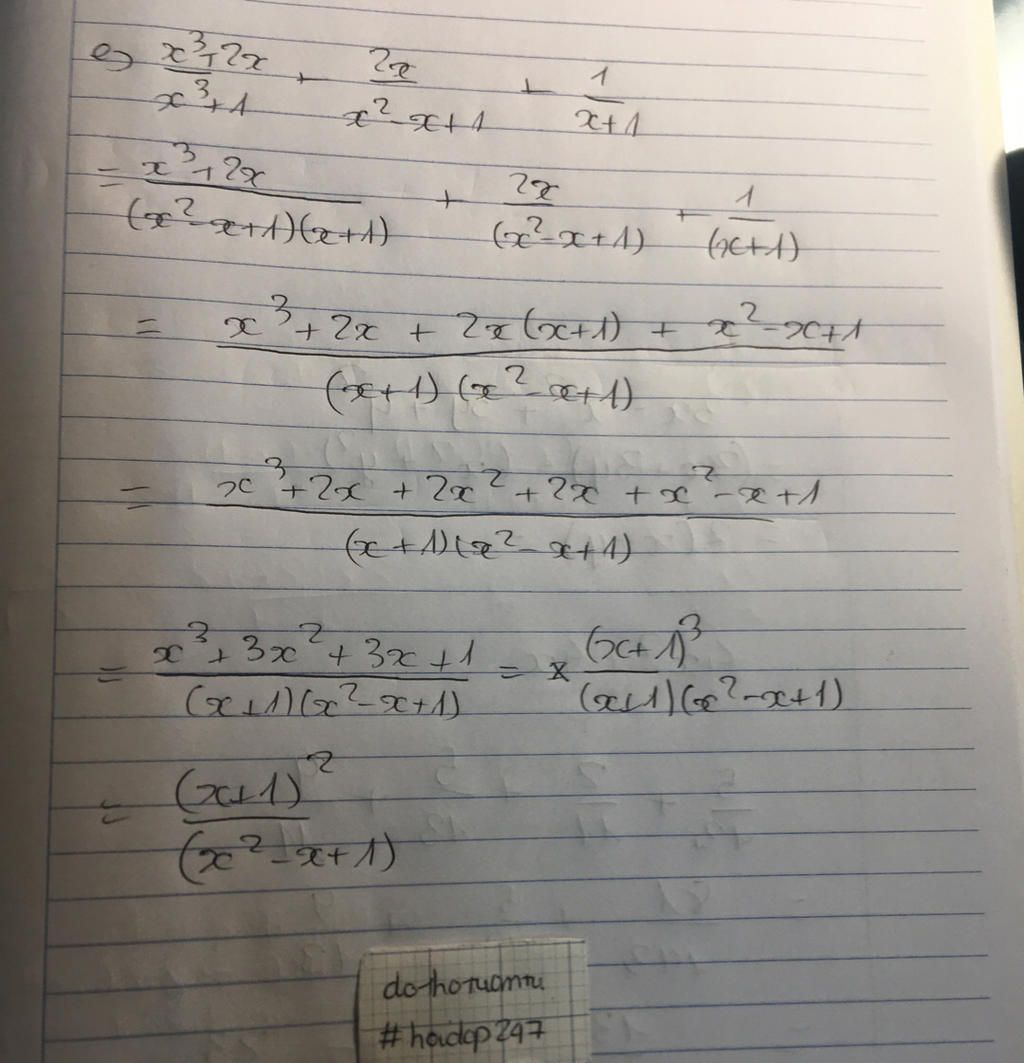 e) \frac{x^3+2x}{x^3+1} + \frac{2x}{x^2-x+1} + \frac{1}{x+1}
= \frac{x^3+2x}{(x^2-x+1)(x+1)} + \frac{2x}{(x^2-x+1)} + \frac{1}{(x+1)}
= \frac{x^3+2x+2x(x+1)+x^2-x+1}{(x+1)(x^2-x+1)}
= \frac{x^3+2x+2x^2+2x+x^2-x+1}{(x+1)(x^2-x+1)}
= \frac{x^3+3x^2+3x+1}{(x+1)(x^2-x+1)} = \frac{(x+1)^3}{(x+1)(x^2-x+1)}
= \frac{(x+1)^2}{(x^2-x+1)}
#hoidap247